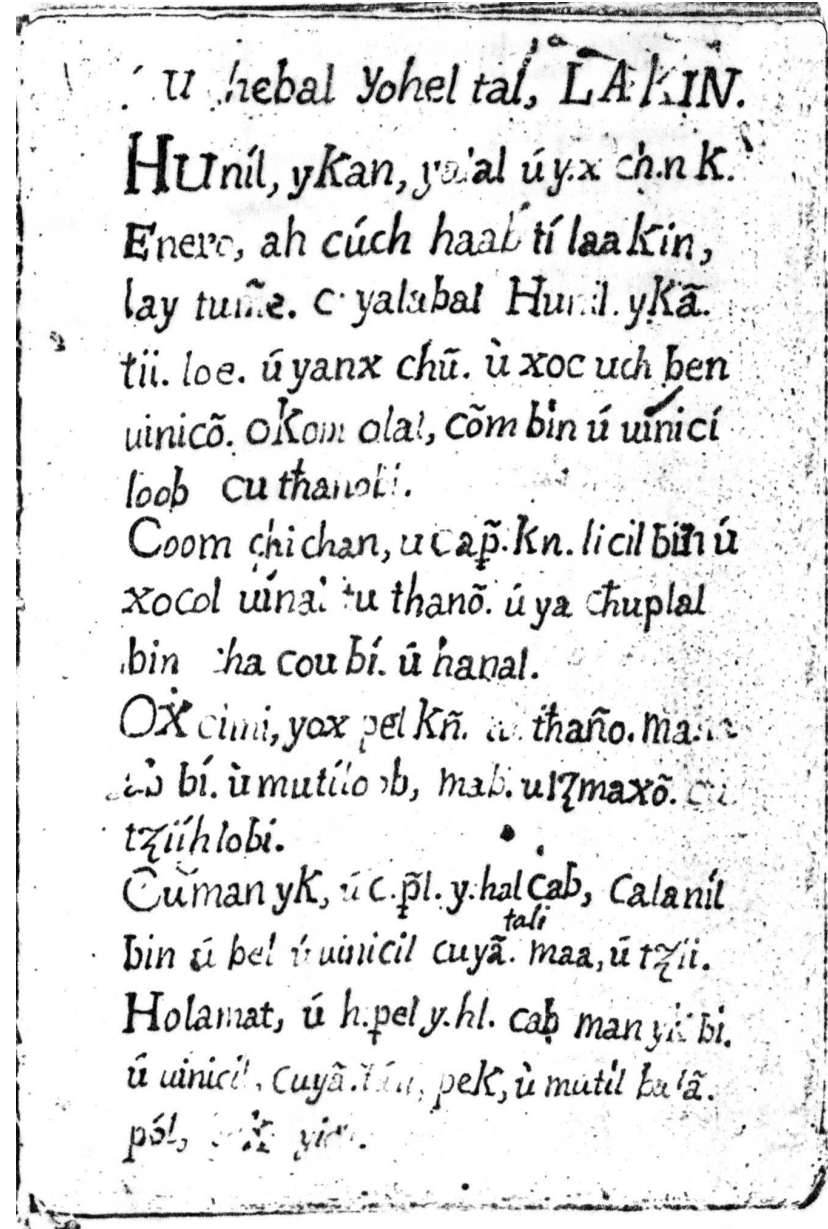 U hebal Yohel tal, LAKIN.
HUníl, yKan, úy.x ch.n K.
Enero, ah cúch haab tí laaKin,
lay c yalabal Hunil. yKã.
tíi. loe. ú yanx chũ. ù xoc uch ben
uinicõ. OKom olal, cõm bin ú uinicí
loob cu
Coom chichan, u cap̃. Kn. licil bin ú
xocol uinal tu thanõ. ú ya chuplal
bin cha cou bí. û hanal.
OX cimi, yox pel Kñ. thaño.
bí. ù mutíloob, mab. ulʒmaxõ.
tʒííhlobí.
Cuman yK, ú c.p̃l. y.hal cab, Calaníl
tali
bin ú bel ú uinicil cuyã. maa, ú tʒíi.
Holamat, ú h.pel y.hl. cab man yK bi.
ú uinicil, cuyã. peK, ù mutíl balã.
pól,